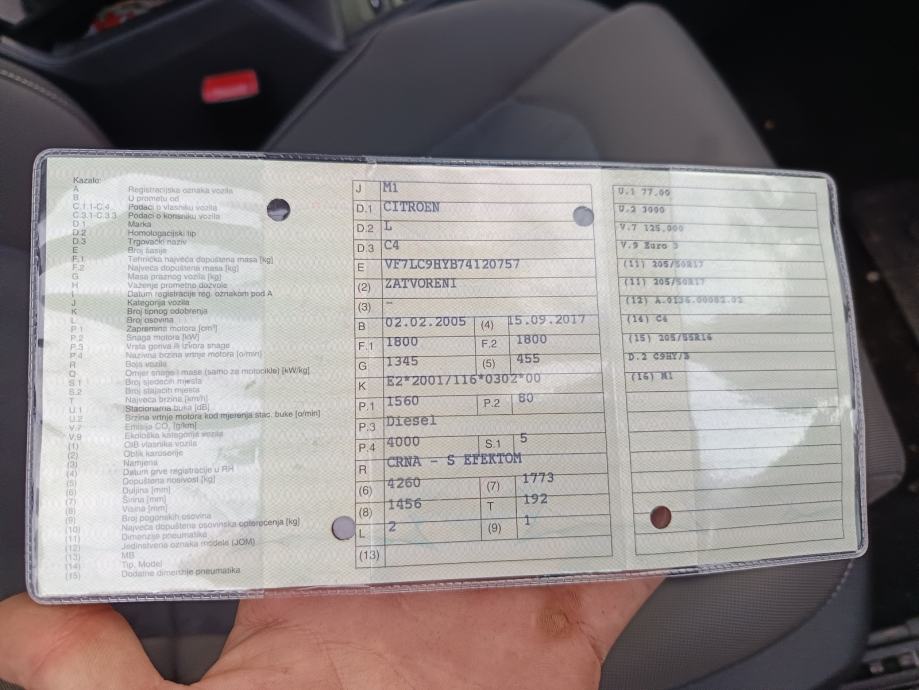 Kazalo:
A Registracijska oznaka vozila
B U prometu od
C.1.1-C.4 Podaci o vlasniku vozila
C.3.1-C.3.3 Podaci o korisniku vozila
D.1 Marka
D.2 Homologacijski tip
D.3 Trgovački naziv
E Broj šasije
F.1 Tehnička najveća dopuštena masa [kg]
F.2 Najveća dopuštena masa [kg]
G Masa praznog vozila [kg]
H Važenje prometne dozvole
I Datum registracije reg. oznakom pod A
J Kategorija vozila
K Broj tipnog odobrenja
L Broj osovina
P.1 Zapremina motora [cm³]
P.2 Snaga motora [kW]
P.3 Vrsta goriva ili izvora snage
P.4 Nazivna brzina vrtnje motora [o/min]
R Boja vozila
Q Omjer snage i mase (samo za motocikle) [kW/kg]
S.1 Broj sjedećih mjesta
S.2 Broj stajaćih mjesta
T Najveća brzina [km/h]
U.1 Stacionarna buka [dB]
U.2 Brzina vrtnje motora kod mjerenja stac. buke [o/min]
V.7 Emisija CO₂ [g/km]
V.9 Ekološka kategorija vozila
(1) OIB vlasnika vozila
(2) Oblik karoserije
(3) Namjena
(4) Datum prve registracije u RH
(5) Dopuštena nosivost [kg]
(6) Duljina [mm]
(7) Širina [mm]
(8) Visina [mm]
(9) Broj pogonskih osovina
(10) Najveća dopuštena osovinska opterećenja [kg]
(11) Dimenzije pneumatika
(12) Jedinstvena oznaka modela (JOM)
(13) MB
(14) Tip, Model
(15) Dodatne dimenzije pneumatika
J M1
D.1 CITROEN
D.2 L
D.3 C4
E VF7LC9HYB74120757
(2) ZATVORENI
(3) -
B 02.02.2005 (4) 15.09.2017
F.1 1800 F.2 1800
G 1345 (5) 455
K E2*2001/116*0302*00
P.1 1560 P.2 80
P.3 Diesel
P.4 4000 S.1 5
R CRNA - S EFEKTOM
(6) 4260 (7) 1773
(8) 1456 T 192
L 2 (9) 1
(13)
U.1 77.00
U.2 3000
V.7 125.000
V.9 Euro 3
(11) 205/50R17
(11) 205/50R17
(12) A.0136.00082.02
(14) C4
(15) 205/55R16
D.2 C9HY/B
(16) M1